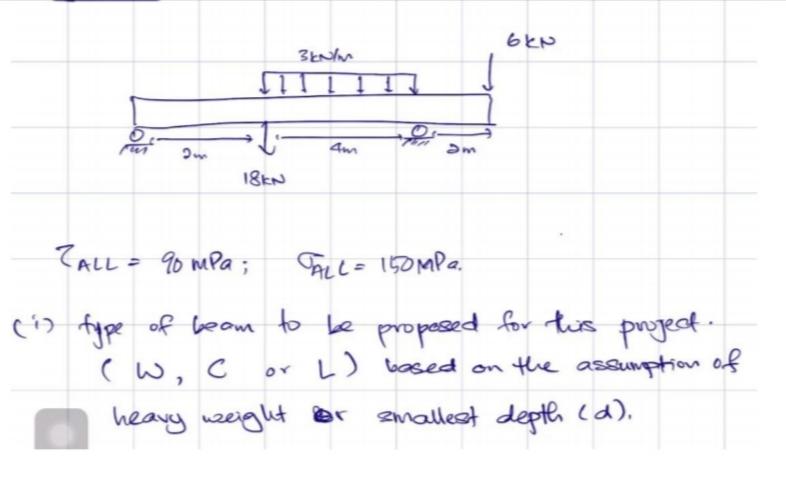 6kN
3kN/m
2m
4m
2m
18kN
τALL = 90 MPa; σALL = 150MPa.
(i) type of beam to be proposed for this project.
(W, C or L) based on the assumption of
heavy weight or smallest depth (d).